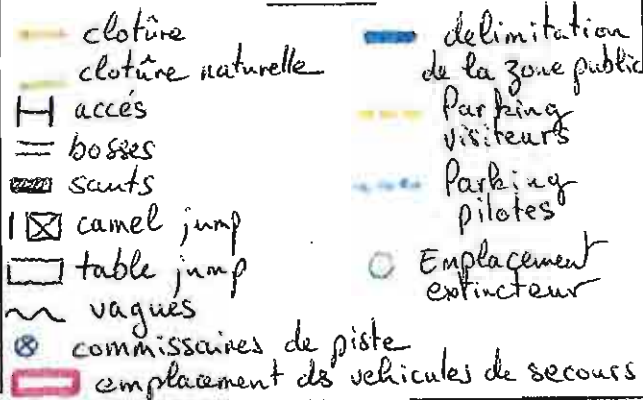 clotûre
clotûre naturelle
accés
bosses
sauts
camel jump
table jump
vagues
commissaires de piste
emplacement ds vehicules de secours
delimitation
de la zone public
Parking
visiteurs
Parking
pilotes
Emplacement
extincteur